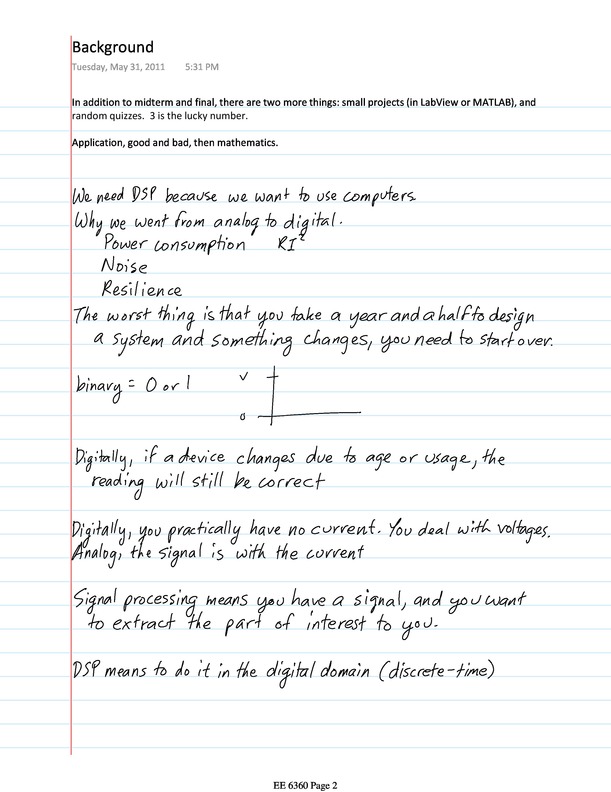 Background
Tuesday, May 31, 2011 5:31 PM
In addition to midterm and final, there are two more things: small projects (in LabView or MATLAB), and
random quizzes. 3 is the lucky number.
Application, good and bad, then mathematics.
We need DSP because we want to use computers.
Why we went from analog to digital.
Power consumption RI²
Noise
Resilience
The worst thing is that you take a year and a half to design
a system and something changes, you need to start over.
binary = 0 or 1
V
0
Digitally, if a device changes due to age or usage, the
reading will still be correct
Digitally, you practically have no current. You deal with voltages.
Analog, the signal is with the current
Signal processing means you have a signal, and you want
to extract the part of interest to you.
DSP means to do it in the digital domain (discrete-time)
EE 6360 Page 2